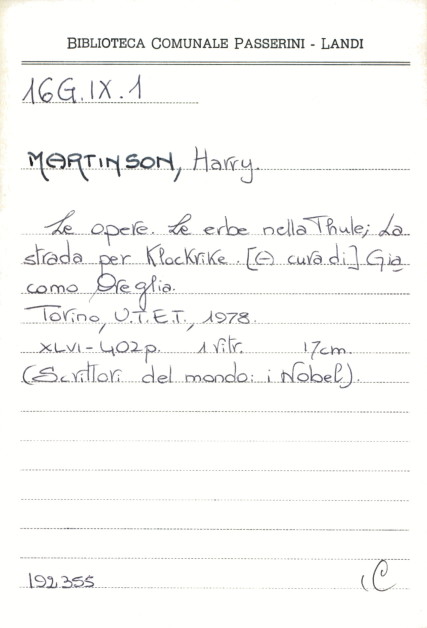 BIBLIOTECA COMUNALE PASSERINI - LANDI
16G.IX.1
MARTINSON, Harry.
Le opere. Le erbe nella Thule; La
strada per Klockrike. [A cura di] Gia
como Oreglia.
Torino, U.T.E.T., 1978.
XLVI-402p. 1 ritr. 17cm.
(Scrittori del mondo: i Nobel).
192355
C